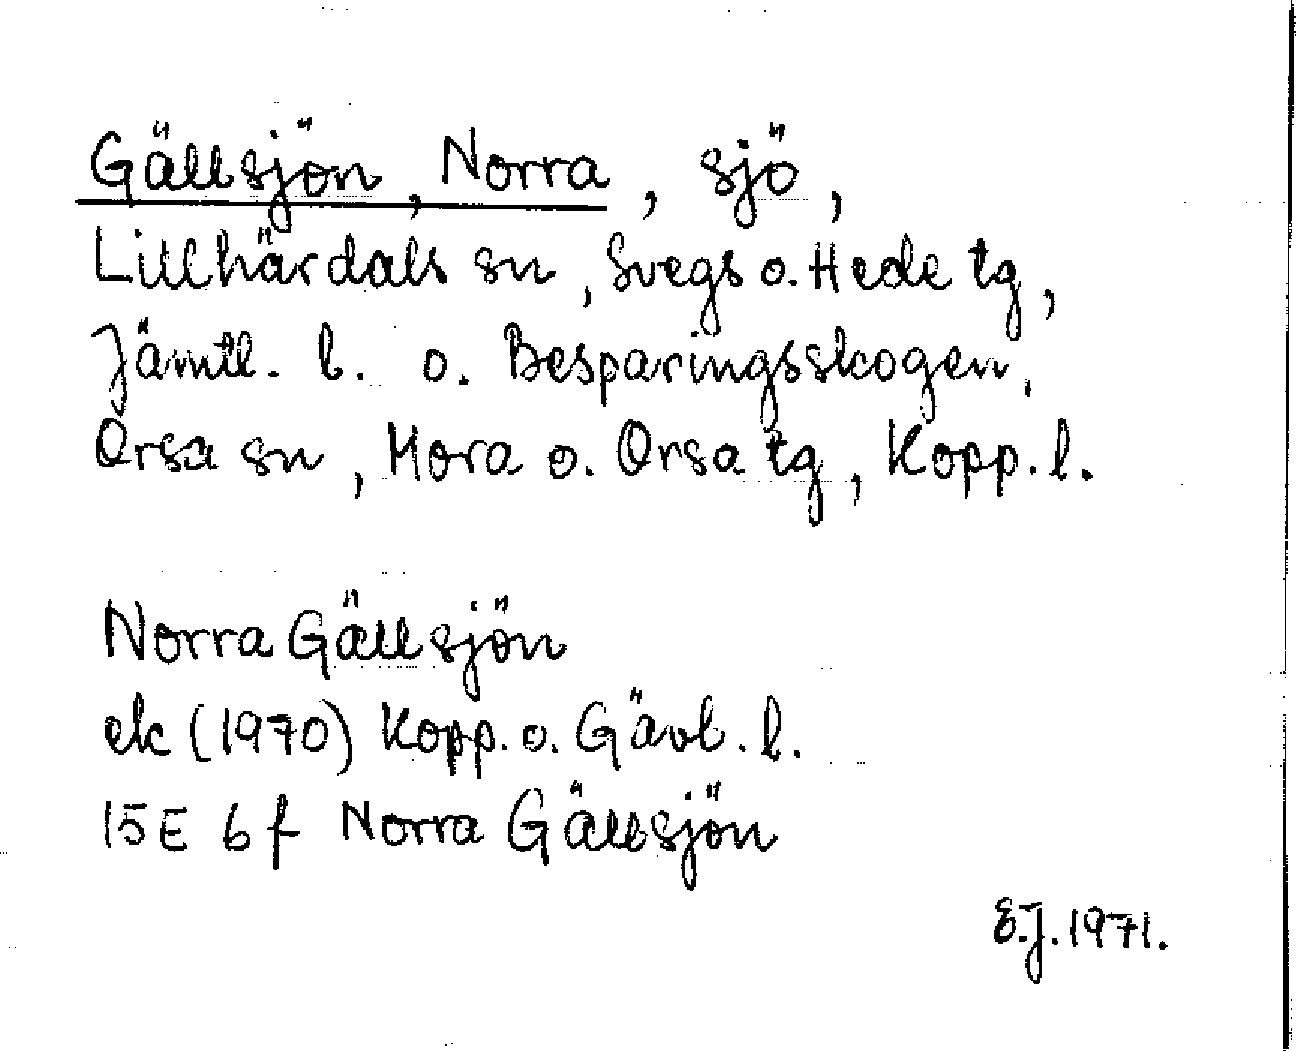 Gällsjön, Norra, sjö,
Lillhärdals sn, Svegs o. Hede tg,
Jämtl. l. o. Besparingsskogen,
Orsa sn, Mora o. Orsa tg, Kopp. l.
Norra Gällsjön
ek (1970) Kopp. o. Gävl. l.
15E 6f Norra Gällsjön
E.J. 1971.